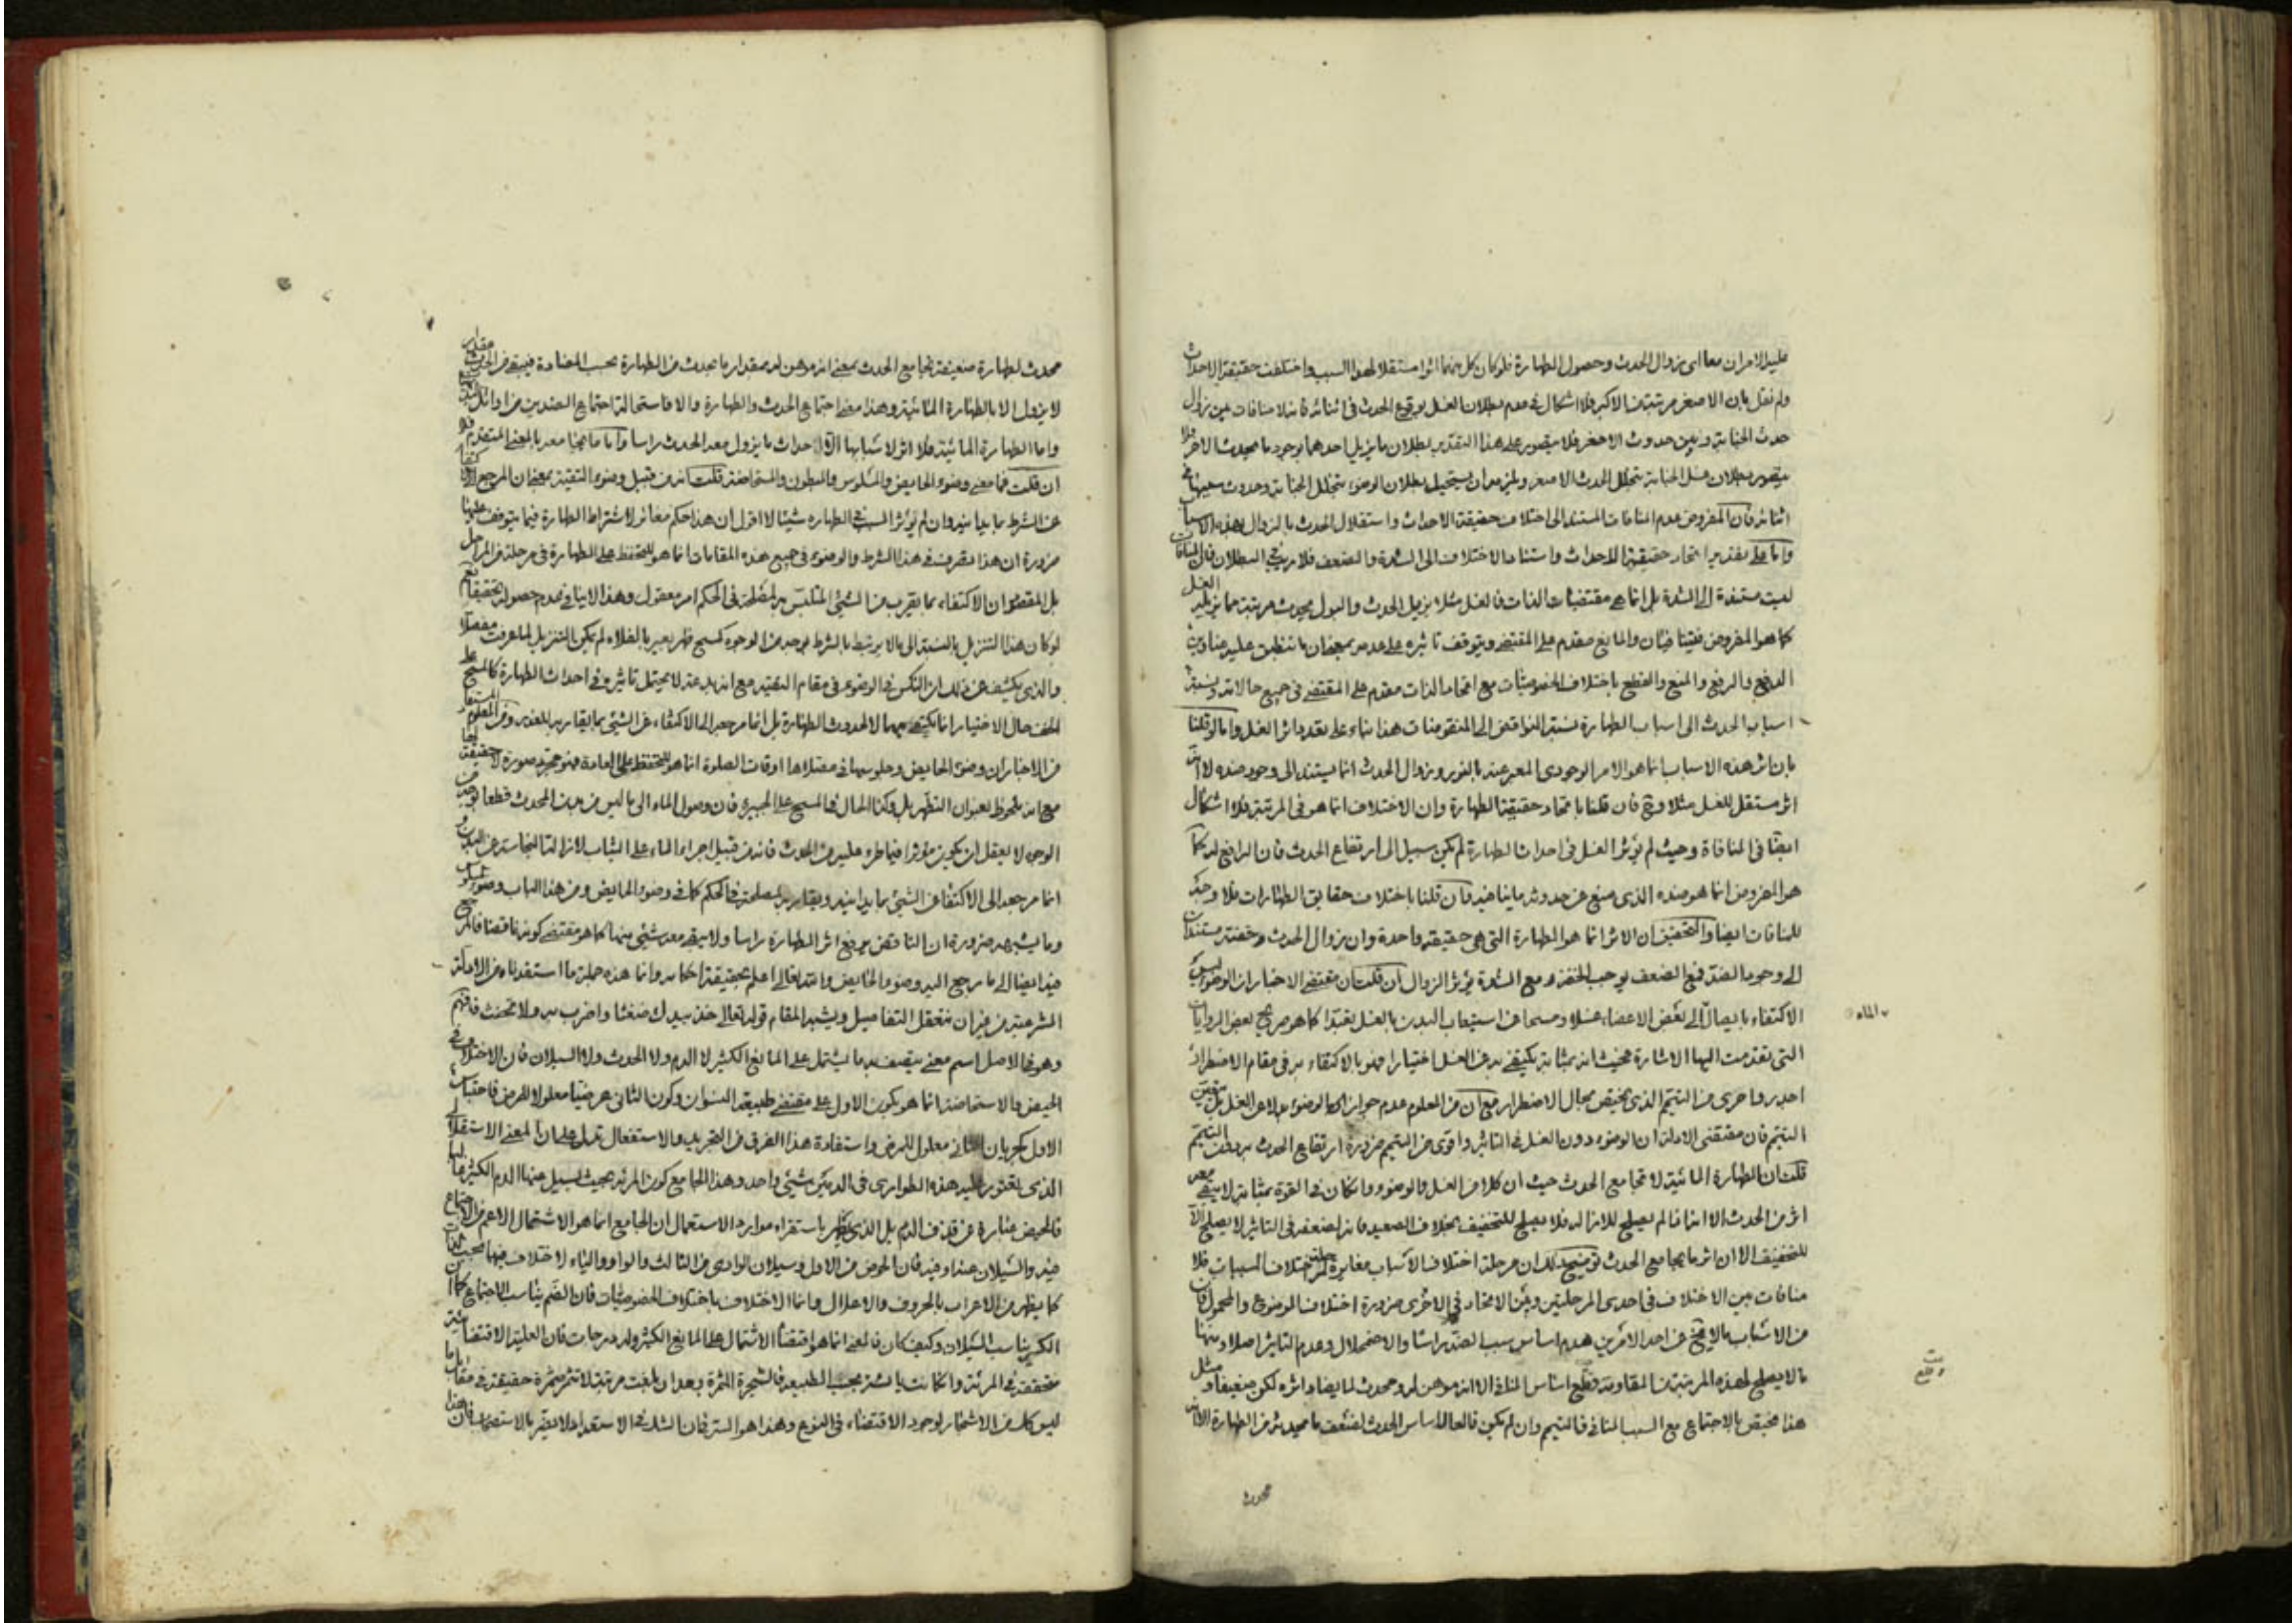 عليه الامران معا اى زوال الحدث وحصول الطهارة فلو كان كل منهما اثرا مستقلا لهذا السبب واختلفت حقيقة الاحداث
ولم نقل بان الاصغر مرتبة من الاكبر فلا اشكال فى عدم بطلان الغسل بوقوع الحدث فى اثنائه فانه لا منافات بين زوال
حدث الجنابة وبين حدوث الاصغر فلا يتصور على هذا التقدير بطلان ما يزيل احدهما بوجود ما يحدث الاخر فلا
يتصور بطلان غسل الجنابة بتخلل الحدث الاصغر ولزمه ان يستحيل بطلان الوضوء بتخلل الجنابة وحدوث سببها فى
اثنائه فان المفروض عدم المنافات المستند الى اختلاف حقيقة الاحداث واستقلال الحدث بالزوال بهذه الاسباب
واما على تقدير اتحاد حقيقة الاحداث واستناد الاختلاف الى الشدة والضعف فلا ريب فى البطلان فان المنافات
ليست مستندة الى الشدة بل انما هى مقتضيات الذات فالغسل مثلا يزيل الحدث والبول يحدث مرتبة مما يزيله الغسل
كما هو المفروض فيتنافيان والمانع مقدم على المقتضى ويتوقف تاثيره على عدمه بمعنى ان ما تنطبق عليه عناوين
الدفع والرفع والمنع والقطع باختلاف الخصوصيات مع اتحاد الذات مقدم على المقتضى فى جميع حالاته ونسبة
اسباب الحدث الى اسباب الطهارة نسبة النواقض الى المنقوضات هذا بناء على تعدد اثر الغسل واما لو قلنا
بان اثر هذه الاسباب انما هو الامر الوجودى المعبر عنه بالنور وزوال الحدث انما يستند الى وجود ضده لا انه
اثر مستقل للغسل مثلا وح فان قلنا باتحاد حقيقة الطهارة وان الاختلاف انما هو فى المرتبة فلا اشكال
ايضا فى المنافاة وحيث لم يؤثر الغسل فى احداث الطهارة لم يكن سبيل الى ارتفاع الحدث فان الرافع له كما
هو المفروض انما هو ضده الذى منع عن حدوثه ما ينافيه فان قلنا باختلاف حقايق الطهارات فلا وجه
للمنافات ايضا والتحقيق ان الاثر انما هو الطهارة التى هى حقيقة واحدة وان زوال الحدث وخفته مستندان
الى وجود الضد فمع الضعف يوجب الخفة ومع الشدة يؤثر الزوال ان قلت ان مقتضى الاخبار ان الوضوء ليس
الاكتفاء بايصال الى بعض الاعضاء غسلا ومسحا عن استيعاب البدن بالغسل تعبدا كما هو صريح بعض الروايات
الماء
التى تقدمت اليها الاشارة فحيث انه بمثابة يكتفى به عن الغسل اختيارا فهو بالاكتفاء به فى مقام الاضطرار
اجدر واحرى من التيمم الذى يختص بحال الاضطرار مع ان من المعلوم عدم جواز الوضوء بدلا عن الغسل بل يتعين
التيمم فان مقتضى الادلة ان الوضوء دون الغسل فى التاثير واقوى من التيمم ضرورة ارتفاع الحدث به دون التيمم
قلت ان الطهارة المائية لا تجامع الحدث حيث ان كلا من الغسل والوضوء وان كان فى القوة بمثابة لا يبقى معه
اثر من الحدث الا انه اذا لم يصلح للازالة فلا يصلح للتخفيف بخلاف الصعيد فانه لضعفه فى التاثير لا يصلح الا
للتخفيف الا ان اثره مما يجامع الحدث توضيح ذلك ان مرحلة اختلاف الاسباب مغايرة لمرحلة اختلاف المسببات فلا
منافات بين الاختلاف فى احدى المرحلتين وبين الاتحاد فى الاخرى ضرورة اختلاف الموضوع والمحمول فان
من الاسباب ما لا يخ عن احد الامرين هدم اساس سبب الضد راسا والاضمحلال وعدم التاثير اصلا ومنها
ما لا يصلح لهذه المرتبة من المقاومة وقلع اساس المنافى الا انه موهن له ومحدث لما يضاد اثره لكن ضعيفا ومثل
هذا مختص بالاجتماع مع السبب المنافى فالتيمم وان لم يكن قالعا لاساس الحدث لضعف ما يحدثه من الطهارة الا انه
محدث
محدث لطهارة ضعيفة تجامع الحدث بمعنى انه موهن له بمقدار ما يحدث من الطهارة بحسب المضادة فيبقى من الحدث مقدار
لا يزول الا بالطهارة المائية وهذا معنى اجتماع الحدث والطهارة والا فاستحالة اجتماع الضدين من اوائل
واما الطهارة المائية فلا اثر لاسبابها الا احداث ما يزول معه الحدث راسا واما ما يجامعه بالمعنى المتقدم فلا
ان قلت فما معنى وضوء الحايض والمسلوس والمبطون والمستحاضة قلت انه من قبيل وضوء التقية بمعنى ان المرجع الاكتفاء
عن الشرط بما يدانيه وان لم يؤثر السبب فى الطهارة شيئا لا اقول ان هذا حكم مغائر لاشتراط الطهارة فيما يتوقف عليها
ضرورة ان هذا تصرف فى هذا الشرط والوضوء فى جميع هذه المقامات انما هو للتحفظ على الطهارة فى مرحلة من المراحل
بل المقصود ان الاكتفاء بما يقرب من الشئ المتلبس به لمصلحة فى الحكم امر معقول وهذا لا ينافى عدم حصوله تحقيقا نعم
لو كان هذا التنزيل بالنسبة الى ما لا يرتبط بالشرط بوجه من الوجوه كمسح ظهر بعير بالفلاة لم يكن التنزيل لما عرفت مفصلا
والذى يكشف عن ذلك ان النكس فى الوضوء فى مقام التقية مع انه بدعة لا يحتمل تاثيره فى احداث الطهارة كالمسح على
الخف حال الاختيار انما يكتفى بهما لا لحدوث الطهارة بل انما مرجعه الى الاكتفاء عن الشئ بما يقاربه للعذر ومن المعلوم
من الاخبار ان وضوء الحايض وجلوسها فى مصلاها اوقات الصلوة انما هو للتحفظ على العادة فهو مجرد صورة لا حقيقة لها
مع انه ملحوظ بعنوان التطهر بل وكذا الحال فى المسح على الجبيرة فان وصول الماء الى ما ليس من بدن المحدث قطعا
الوجوه لا يعقل ان يكون مؤثرا فيما طرء عليه من الحدث فانه من قبيل اجراء الماء على الثياب لازالة النجاسة عن البدن و
انما مرجعه الى الاكتفاء عن الشئ بما يدانيه ويقاربه لمصلحة فى الحكم كما فى وضوء الحايض ومن هذا الباب وضوء المسلوس
وما يشبهه ضرورة ان الناقض يرفع اثر الطهارة راسا ولا يبقى معه شئ منها كما هو مقتضى كونه ناقضا فالمرجع
فيه ايضا الى ما يرجع اليه وضوء الحايض والله تعالى اعلم بحقيقة احكامه وانما هذه جملة ما استفدناه من الادلة
الشرعية من غير ان نتعقل التفاصيل ويشبه المقام قوله تعالى خذ بيدك ضغثا واضرب به ولا تحنث فافهم
وهو فى الاصل اسم معنى يتصف به ما يشتمل على المايع الكثير لا الدم ولا الحدث ولا السيلان فان الاختلاف فى
الحيض والاستحاضة انما هو بكون الاول على مقتضى طبيعة النسوان وكون الثانى عرضيا معلولا للمرض فاحتباس
الاول كجريان الثانى معلول للمرض واستفادة هذا الفرق من التجريد والاستفعال تدل على ان المعنى الاستقلالى
الذى يعتور عليه هذه الطوارى فى الدمين شئ واحد وهذا الجامع كون المرئة بحيث يسيل منها الدم الكثير
فالحيض عبارة عن قذف الدم بل الذى يظهر باستقراء موارد الاستعمال ان الجامع انما هو الاشتمال الاعم من الاجتماع
فيه والسيلان عنه او فيه فان الحوض من الاول وسيلان الوادى من الثالث والواو والياء لا اختلاف فيهما بحسب الذات
كما يظهر من الاعراب بالحروف والاعلال وانما الاختلاف باختلاف الخصوصيات فان الضم يناسب الاجتماع كما ان
الكسر يناسب السيلان وكيف كان فالمعنى انما هو اقتضاء الاشتمال على المايع الكثير وله درجات فان العلية الاقتضائية
متحققة فى المرئة وان كانت يائسة بحسب الطبيعة فالشجرة المثمرة بعد ان بلغت مرتبة لا تثمر مثمرة حقيقة فى مقابل ما
ليس كك من الاشجار لوجود الاقتضاء فى النوع وهذا هو السر فان الشك فى الاستعداد لا يضر بالاستصحاب فان هذا